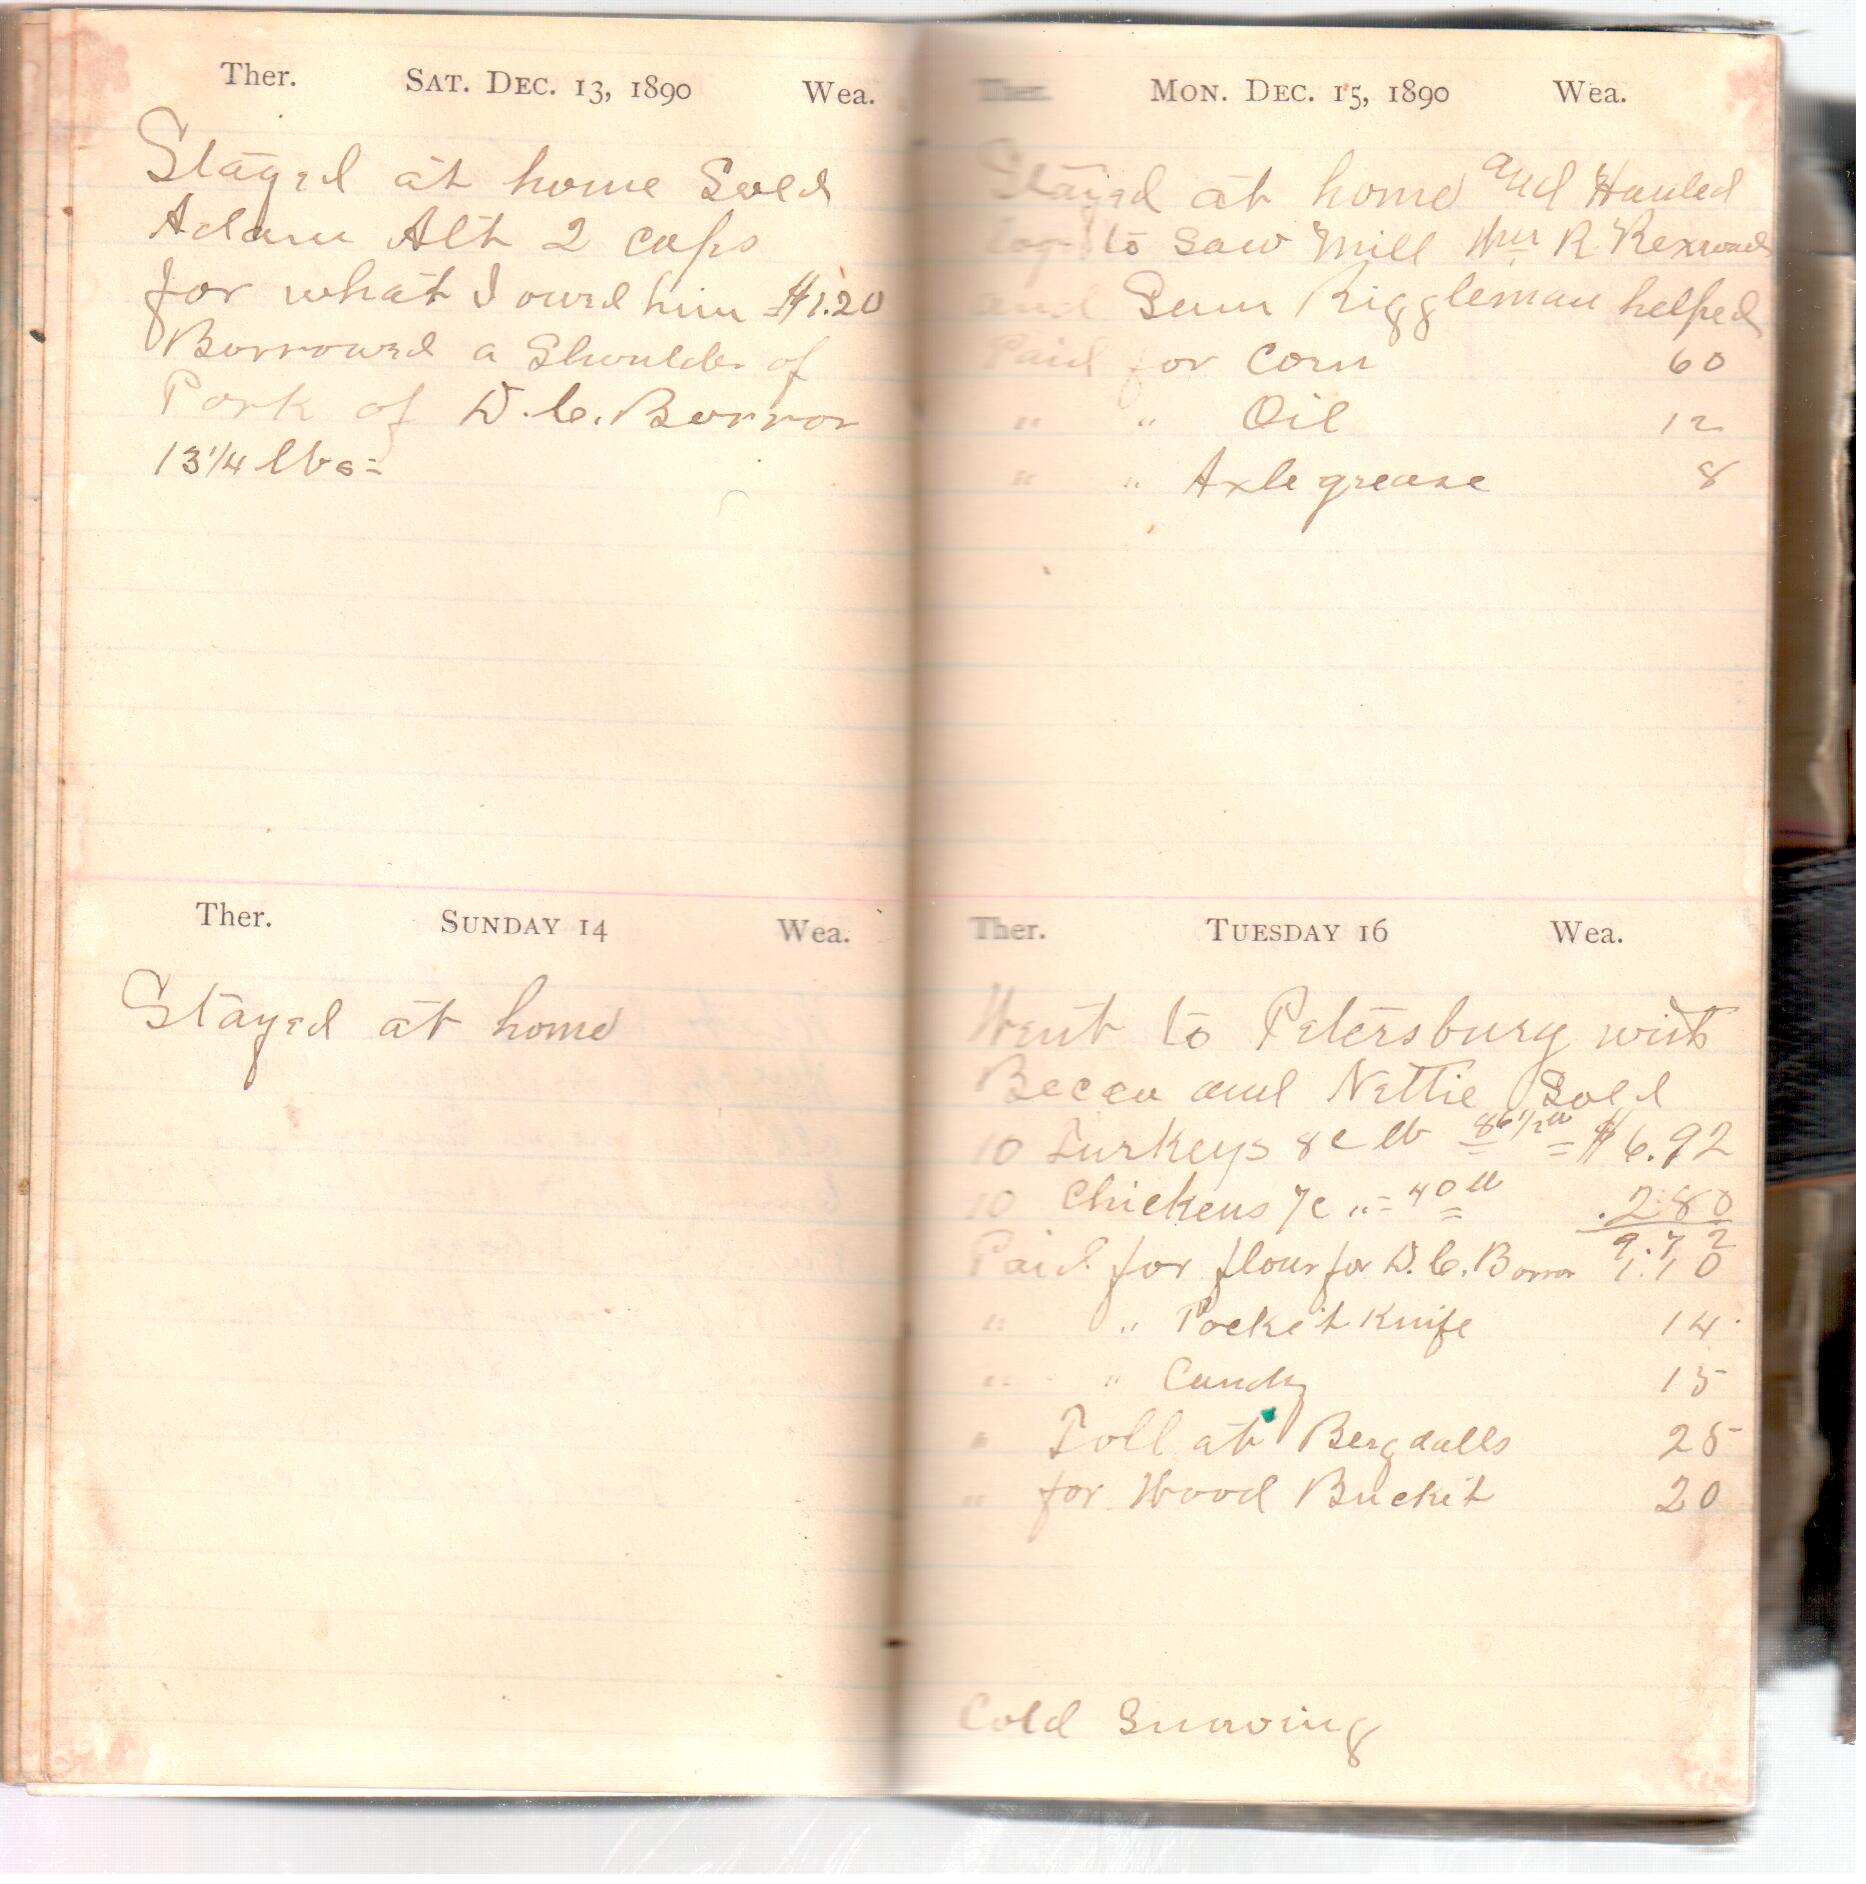 Ther. SAT. DEC. 13, 1890 Wea.
Stayed at home Sold
Adam Alt 2 caps
for what I owed him $1.20
Borrowed a Shoulder of
Pork of D. C. Borror
13 1/4 lbs =
Ther. SUNDAY 14 Wea.
Stayed at home
Ther. MON. DEC. 15, 1890 Wea.
Stayed at home and Hauled
logs to Saw Mill Wm R. Rexroad
and Riggleman helped
Paid for Corn 60
" " Oil 12
" " Axle grease 8
Ther. TUESDAY 16 Wea.
Went to Petersburg with
Becca and Nettie Sold
10 Turkeys 8c lb 86 1/2 lb = $6.92
10 Chickens 7c " = 40 lb .280
9.72
Paid for flour for D. C. Borror 1.10
" " Pocket Knife 14
" " Candy 15
" Toll at Bergdalls 25
" for Wood Bucket 20
Cold Snowing